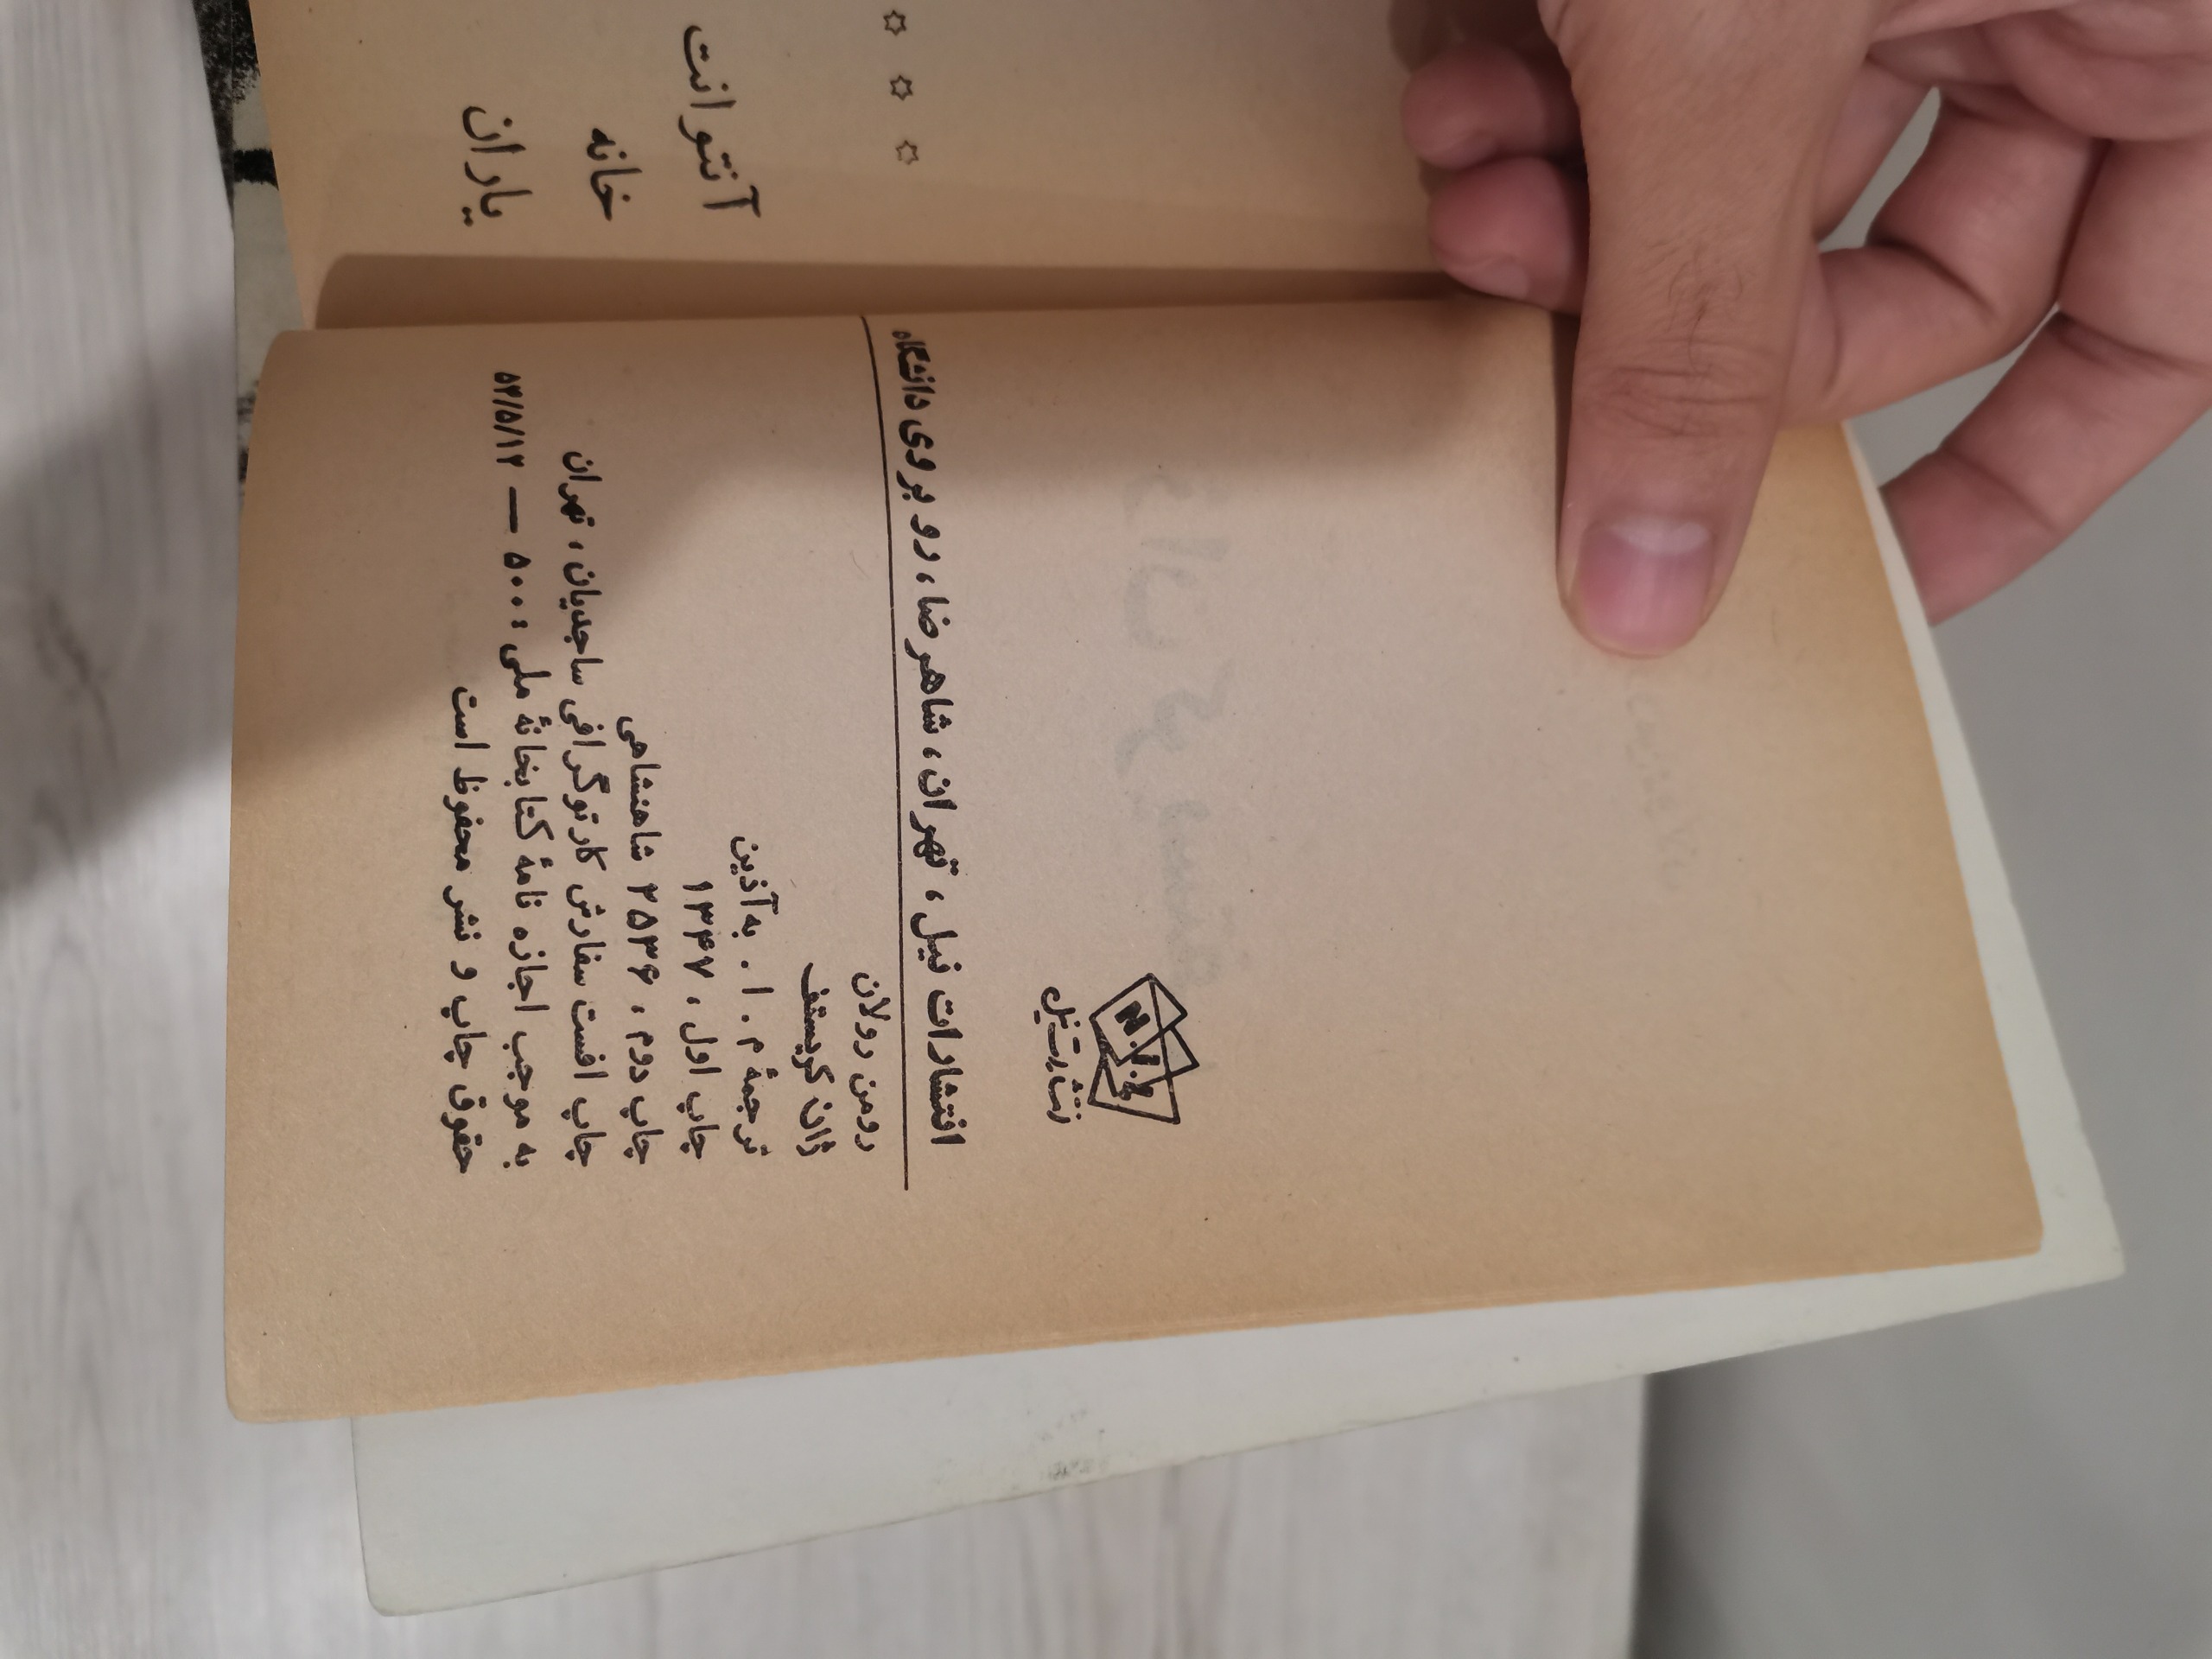 N.I.L
انتشارات نیل
انتشارات نیل ، تهران ، شاهرضا ، رو بروی دانشگاه
رومن رولان
ژان کریستف
ترجمهٔ م . ا . به‌آذین
چاپ اول ، ۱۳۴۷
چاپ دوم ، ۲۵۳۶ شاهنشاهی
چاپ افست سفارش کارتوگرافی ساجدیان ، تهران
به موجب اجازه نامهٔ کتابخانهٔ ملی : ۵۰۰ — ۵۴/۵/۱۲
حقوق چاپ و نشر محفوظ است
☆ ☆ ☆
آنتوانت
خانه
یاران